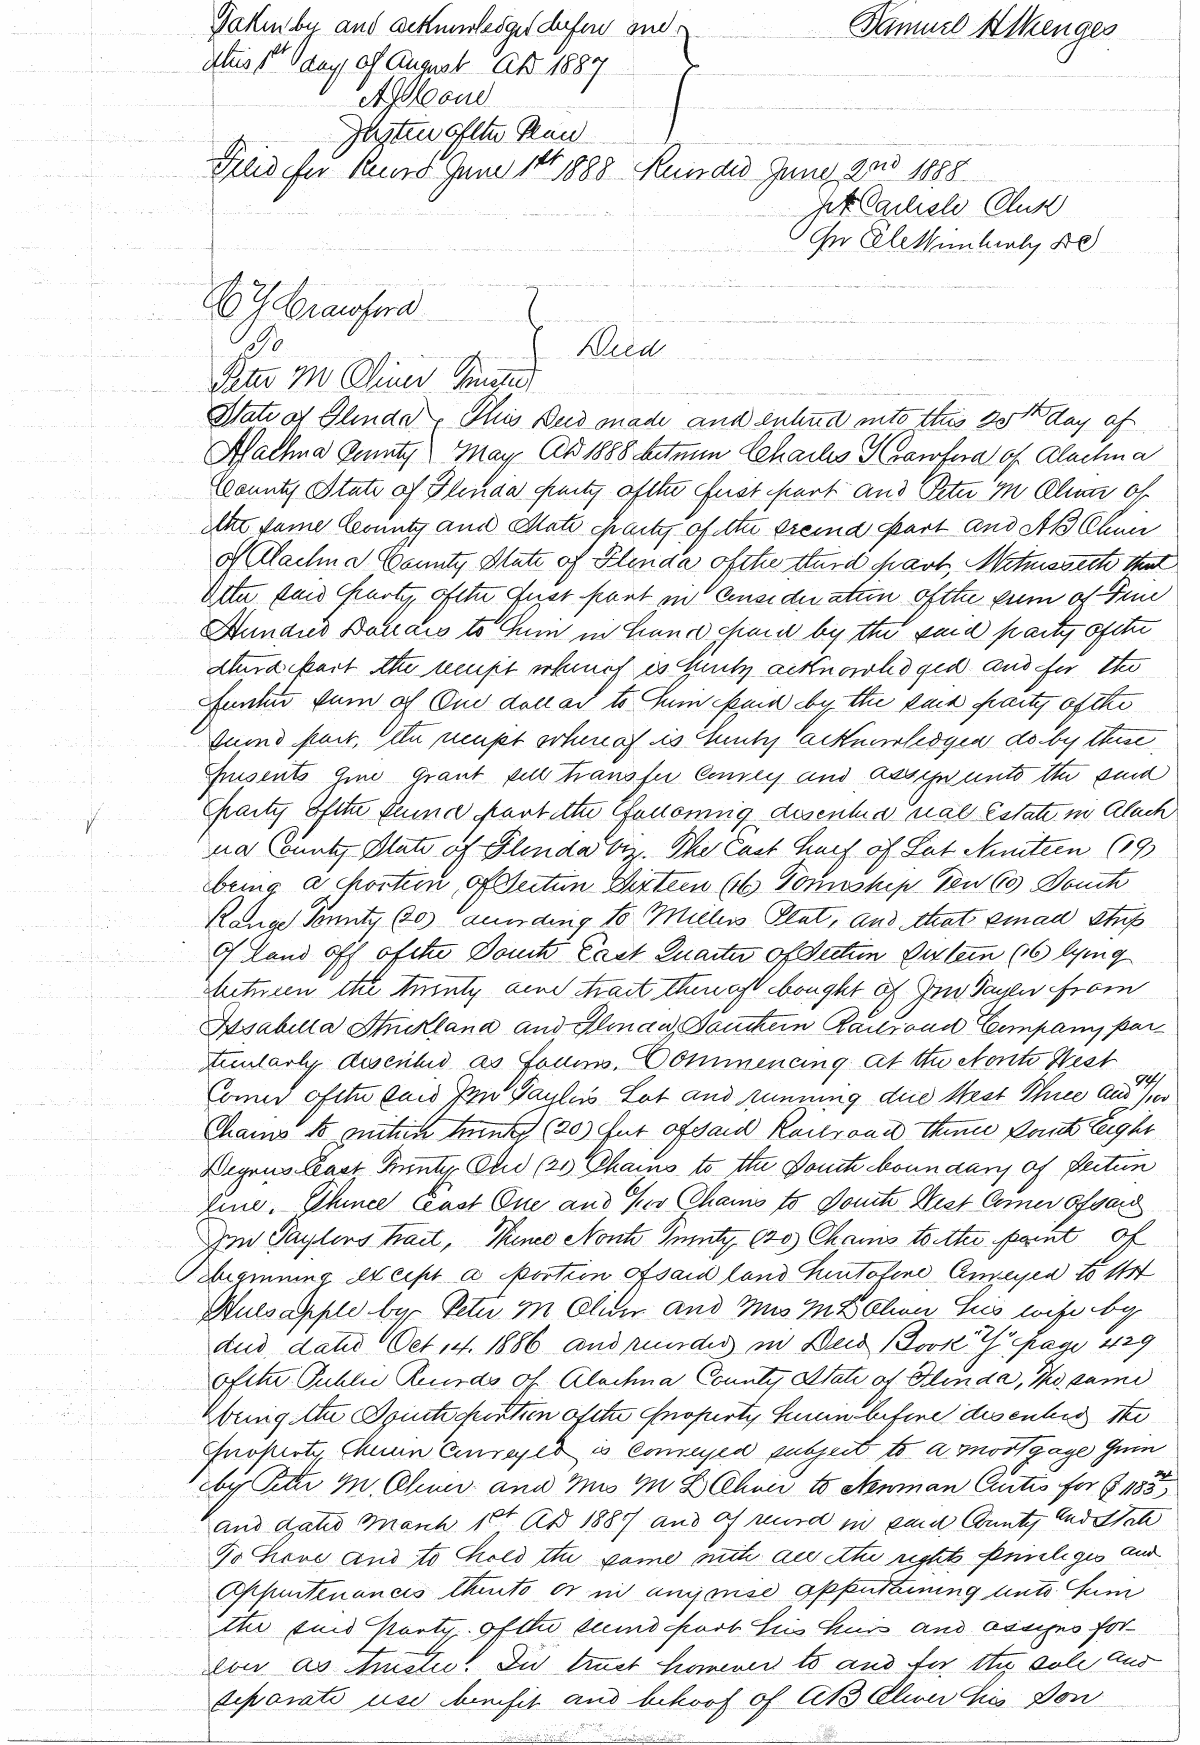 Taken by and acknowledged before me
this 1st day of August AD 1887
Samuel H Wenges
Justice of the Peace
Filed for Record June 1st 1888 Recorded June 2nd 1888
Carlisle Clerk
Wimberly DC
C Y Crawford
To
Deed
Peter M Oliver Trustee
State of Florida This Deed made and entered into this 25th day of
Alachua County May AD 1888 between Charles Y Crawford of Alachua
County State of Florida party of the first part and Peter M Oliver of
the same County and State party of the second part and AB Oliver
of Alachua County State of Florida of the third part, Witnesseth that
the said party of the first part in consideration of the sum of Five
Hundred Dollars to him in hand paid by the said party of the
third part the receipt whereof is hereby acknowledged and for the
further sum of One dollar to him paid by the said party of the
second part, the receipt whereof is hereby acknowledged do by these
presents give grant sell transfer convey and assign unto the said
party of the second part the following described real Estate in Alach
ua County State of Florida viz. The East half of Lot Nineteen (19)
being a portion of Section Sixteen (16) Township Ten (10) South
Range Twenty (20) according to Millers Plat, and that small strip
of land off of the South East Quarter of Section Sixteen (16) lying
between the twenty acre tract thereof bought of Jno Taylor from
Issabella Strickland and Florida Southern Railroad Company par-
ticularly described as follows. Commencing at the North West
Corner of the said Jno Taylor's Lot and running due West Three and 94/100
Chains to within twenty (20) feet of said Railroad thence South Eight
Degrees East Twenty One (21) Chains to the South boundary of Section
line. Thence East One and /100 Chains to South West Corner of said
Jno Taylors tract, Thence North Twenty (20) Chains to the point of
beginning except a portion of said land heretofore Conveyed to
Hulsapple by Peter M Oliver and Mrs M L Oliver his wife by
deed dated Oct 14. 1886 and recorded in Deed Book "Y" page 429
of the Public Records of Alachua County State of Florida, the same
being the South portion of the property herein before described the
property herein Conveyed is conveyed subject to a mortgage given
by Peter M. Oliver and Mrs M L Oliver to Newman Curtis for $1183
and dated March 1st AD 1887 and of record in said County and State
To have and to hold the same with all the rights privileges and
appurtenances thereto or in anywise appertaining unto him
the said party of the second part his heirs and assigns for-
ever as trustee. In trust however to and for the sole and
separate use benefit and behoof of AB Oliver his Son